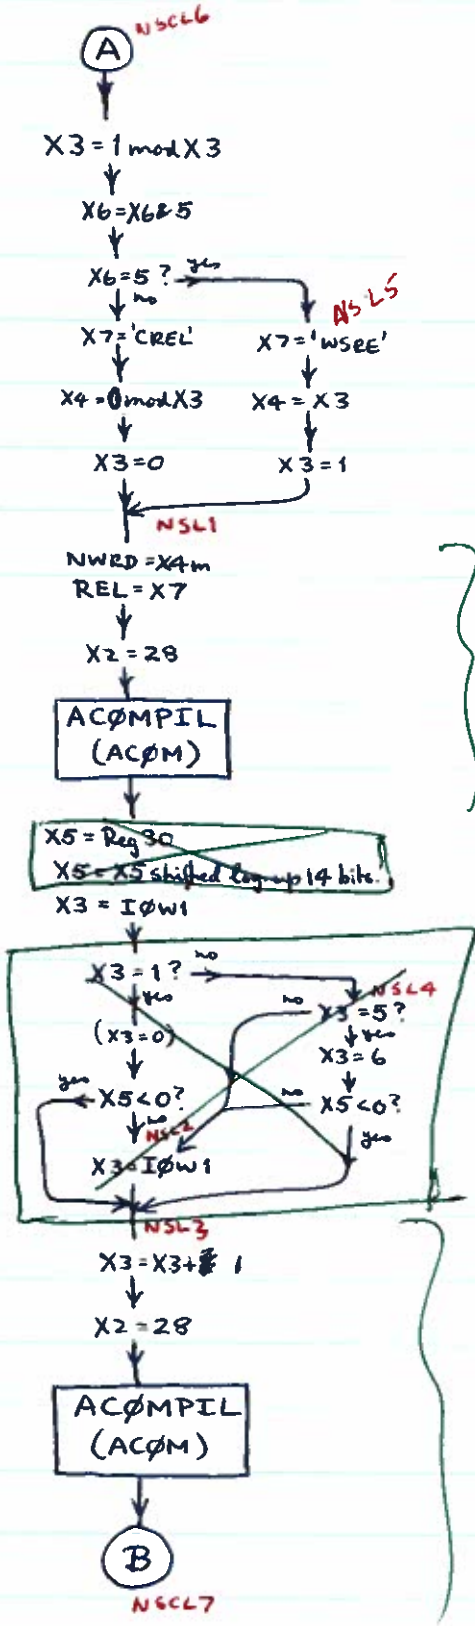 NSCL6
A
X3 = 1 mod X3
X6 = X6 & 5
X6 = 5 ? yes
no
NSL5
X7 = 'CREL'
X7 = 'WSRE'
X4 = 0 mod X3
X4 = X3
X3 = 0
X3 = 1
NSL1
NWRD = X4m
REL = X7
X2 = 28
ACØMPIL
(ACØM)
X5 = Reg 30
X5 = X5 shifted up 14 bits.
X3 = IØW1
X3 = 1 ? no
NSL4
yes
no
X3 = 5 ?
(X3=0)
yes
X3 = 6
yes
X5 < 0 ?
no
X5 < 0 ?
no
NSL2
yes
X3 = IØW1
NSL3
X3 = X3 + 1
X2 = 28
ACØMPIL
(ACØM)
B
NSCL7